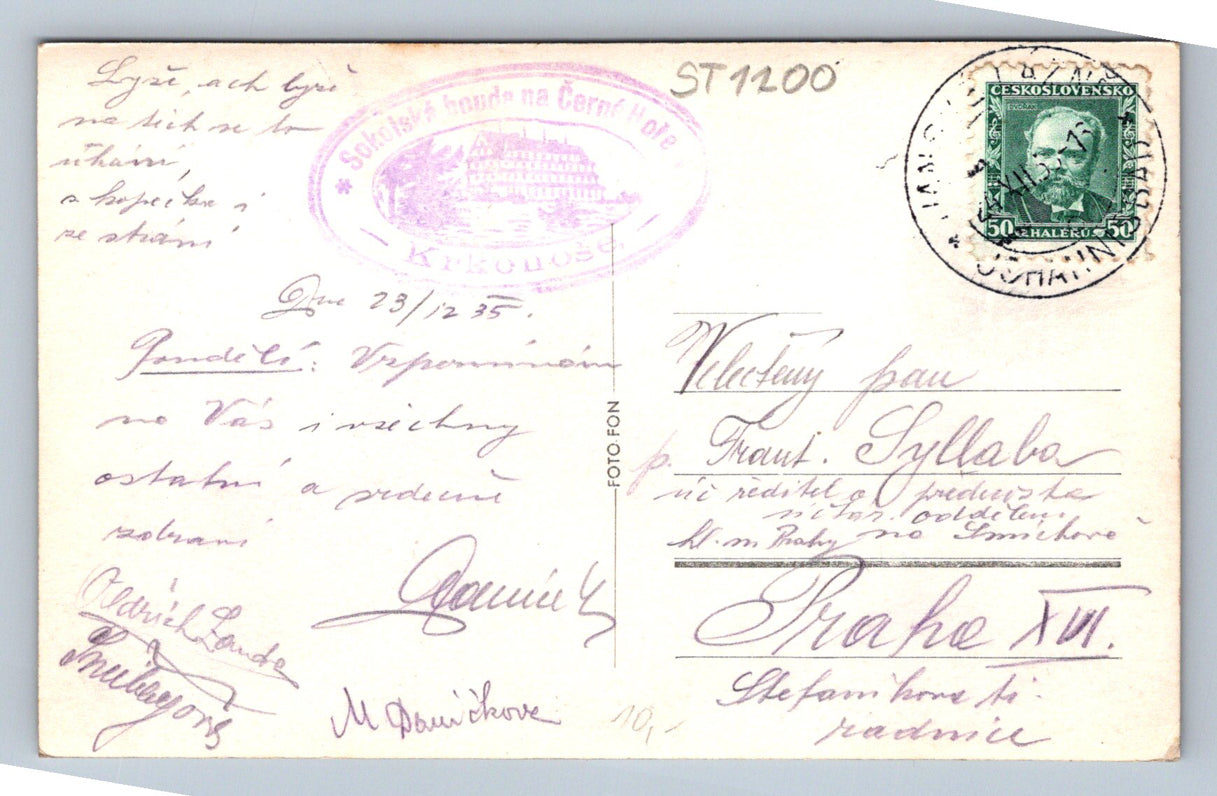 Lyže, ach lyže
na těch se to
uhání,
s kopečka i
ze stráni
* Sokolská bouda na Černé Hoře *
— Krkonoše —
ST 1200
ČESKOSLOVENSKO
DVOŘÁK
50 HALÉŘŮ 50
JOHANNISBAD
Dne 23/12 35.
Pondělí: Vzpomínám
na Vás i všechny
ostatní a srdečně
zdraví
Daníček
Oldřich Landa
M Daníčkova
10,-
FOTO-FON
Velectěný pan
p. Frant. Syllaba
úč ředitel a přednosta
účtár. oddělení
hl. m Prahy na Smíchově
Praha XVI.
Štefanikova tř.
radnice